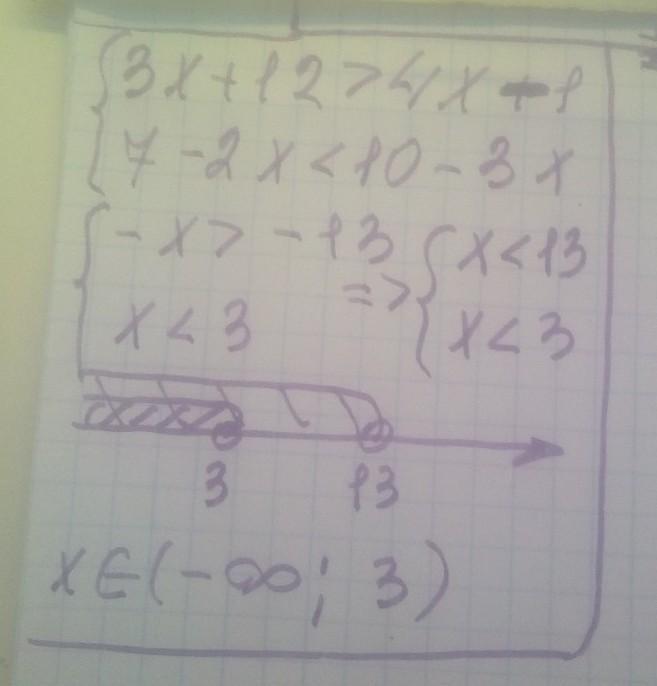 3x+12>4x-1
7-2x<10-3x
-x>-13 => x<13
x<3 x<3
3 13
x∈(-∞; 3)